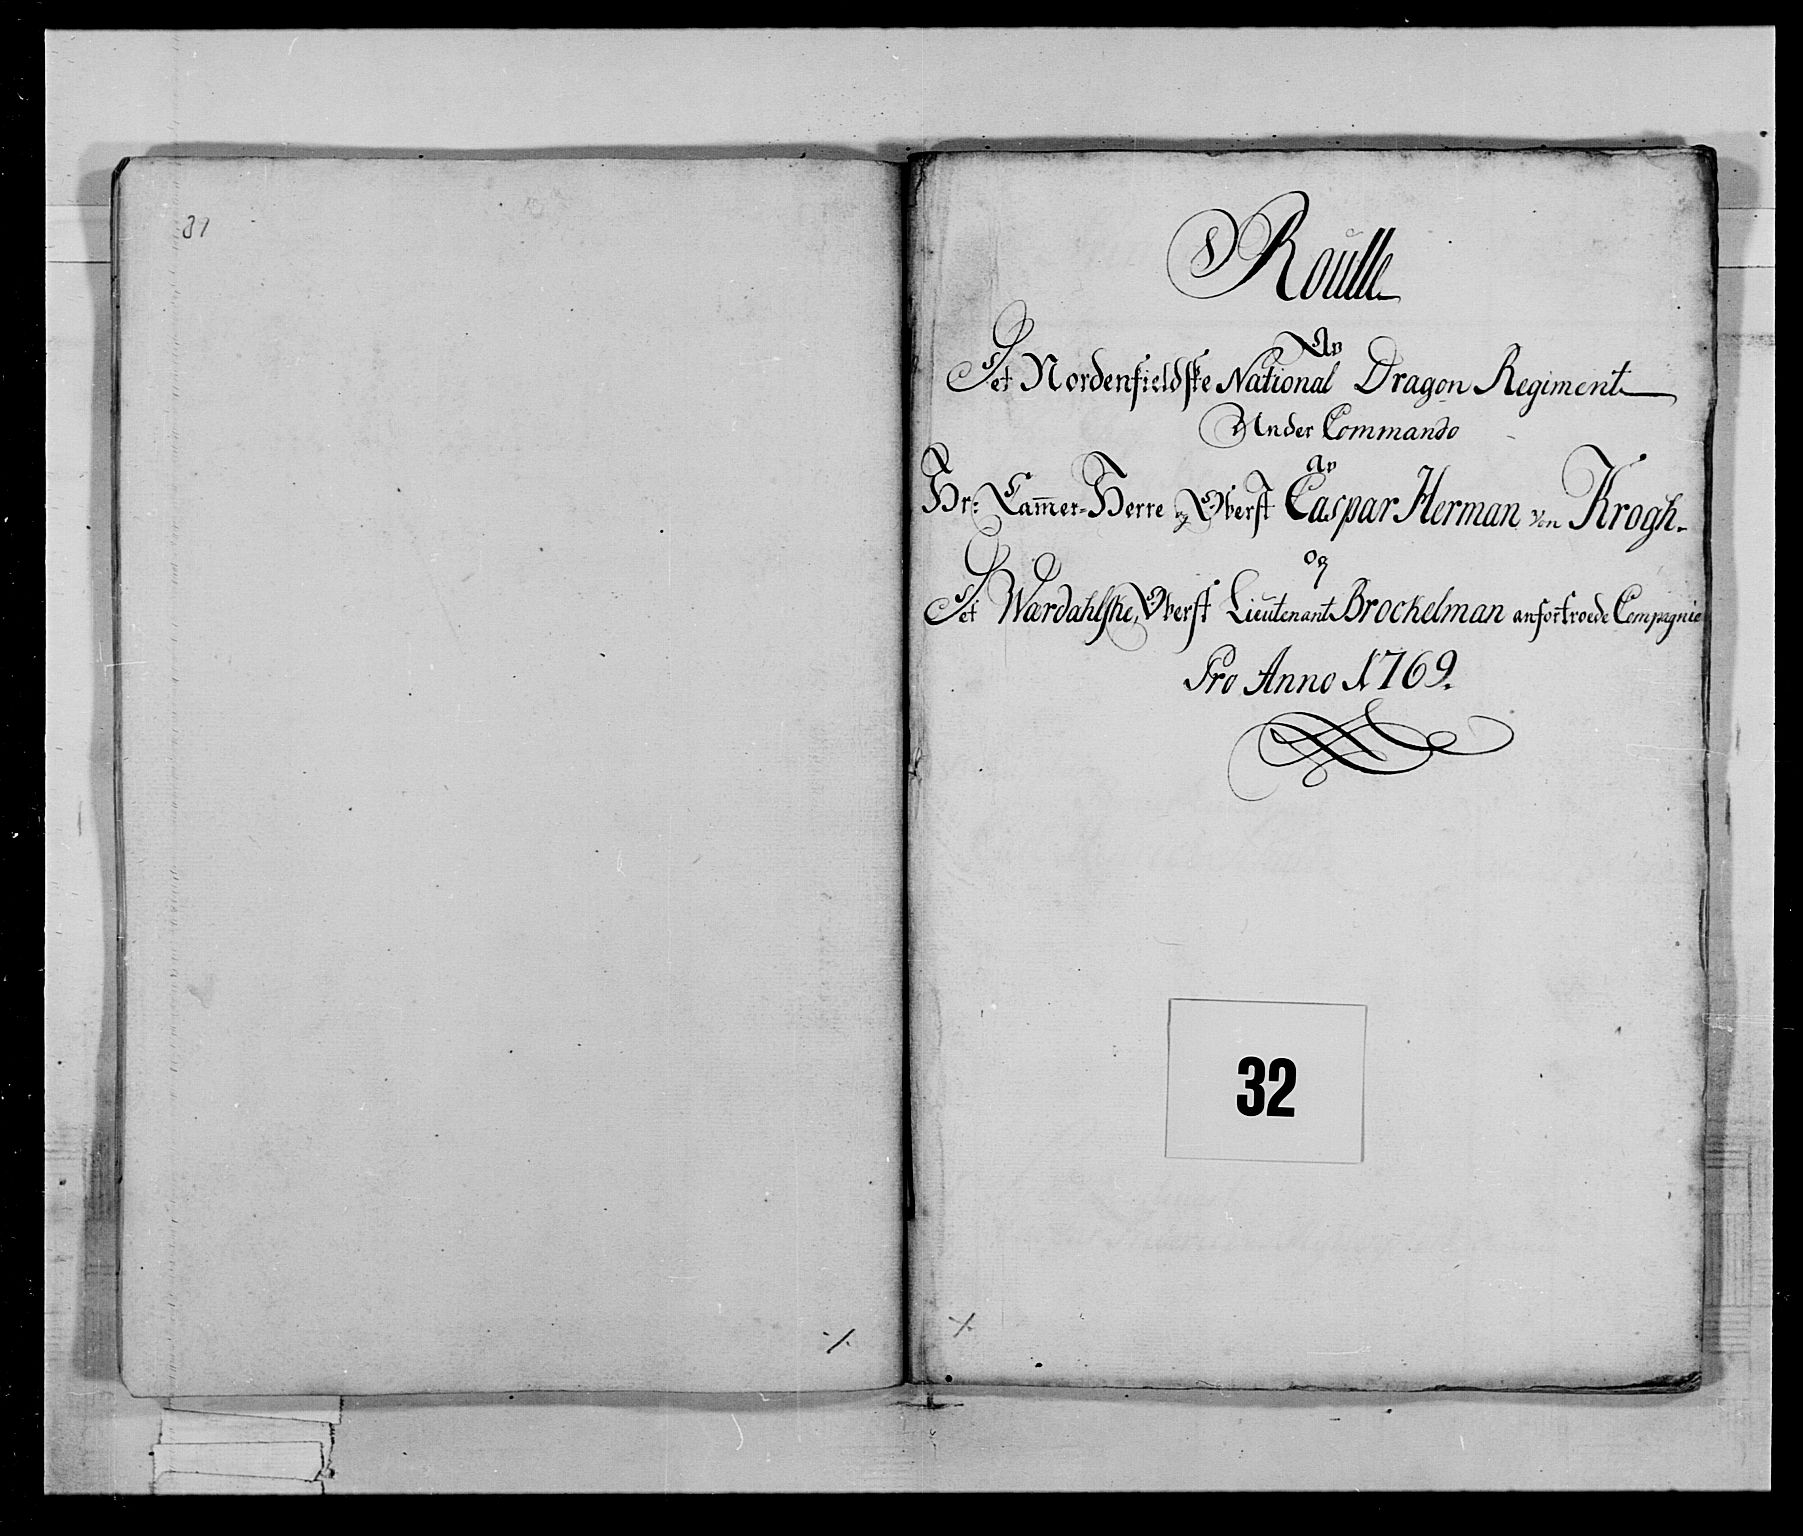 31
Roulle
Av
Det Nordenfieldske National Dragon Regiment
Under Commando
av
Hr: Cam̄er-Herre og Oberst Caspar Herman von Krogh.
og
Det Wærdahlske, Oberst Lieutenant Brockelman anfortroede Compagnie
Pro Anno 1769.
32